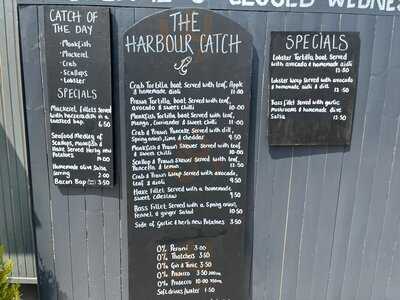 CLOSED WEDNES
CATCH OF
THE DAY
· Monkfish
· Mackerel
· Crab
· Scallops
· Lobster
SPECIALS
Mackerel fillets Served
with horseradish in a
toasted bap 6.50
Seafood Medley of
Scallops, monkfish &
Hake Served Herby new
Potatoes 14.00
Homemade olive Salsa
Serving 2.00
Bacon Bap 3.50
THE
HARBOUR CATCH
Crab Tortilla boat Served with leaf, Apple
& homemade aioli 11.00
Prawn Tortilla boat, Served with leaf,
avocado & sweet chilli 10.50
Monkfish Tortilla boat Served with leaf,
Mango, Coriander & Sweet chilli 11.00
Crab & Prawn Pancake Served with dill,
Spring onion, lime & cheddar 9.50
Monkfish & Prawn Skewer Served with leaf,
& Sweet Chilli 10.50
Scallop & Prawn Skewer Served with leaf,
Pancetta & lemon 13.50
Crab & Prawn Wrap Served with avocado,
leaf & aioli 9.50
Hake fillet Served with a homemade
sweet coleslaw 9.50
Bass fillet Served with a Spring onion,
fennel & ginger Salad 10.50
Side of Garlic & herb new Potatoes 3.50
0% Peroni 3.00
0% Thatchers 3.50
0% Gin & Tonic 3.50
0% Prosecco 3.50
0% Prosecco 10.00
Soft drinks/water 1.50
SPECIALS
Lobster Tortilla boat Served
with avocado & homemade aioli
13.50
Lobster Wrap Served with avocado
& homemade aioli & dill
13.50
Bass fillet Served with garlic
mushrooms & homemade olive
Salsa 13.50